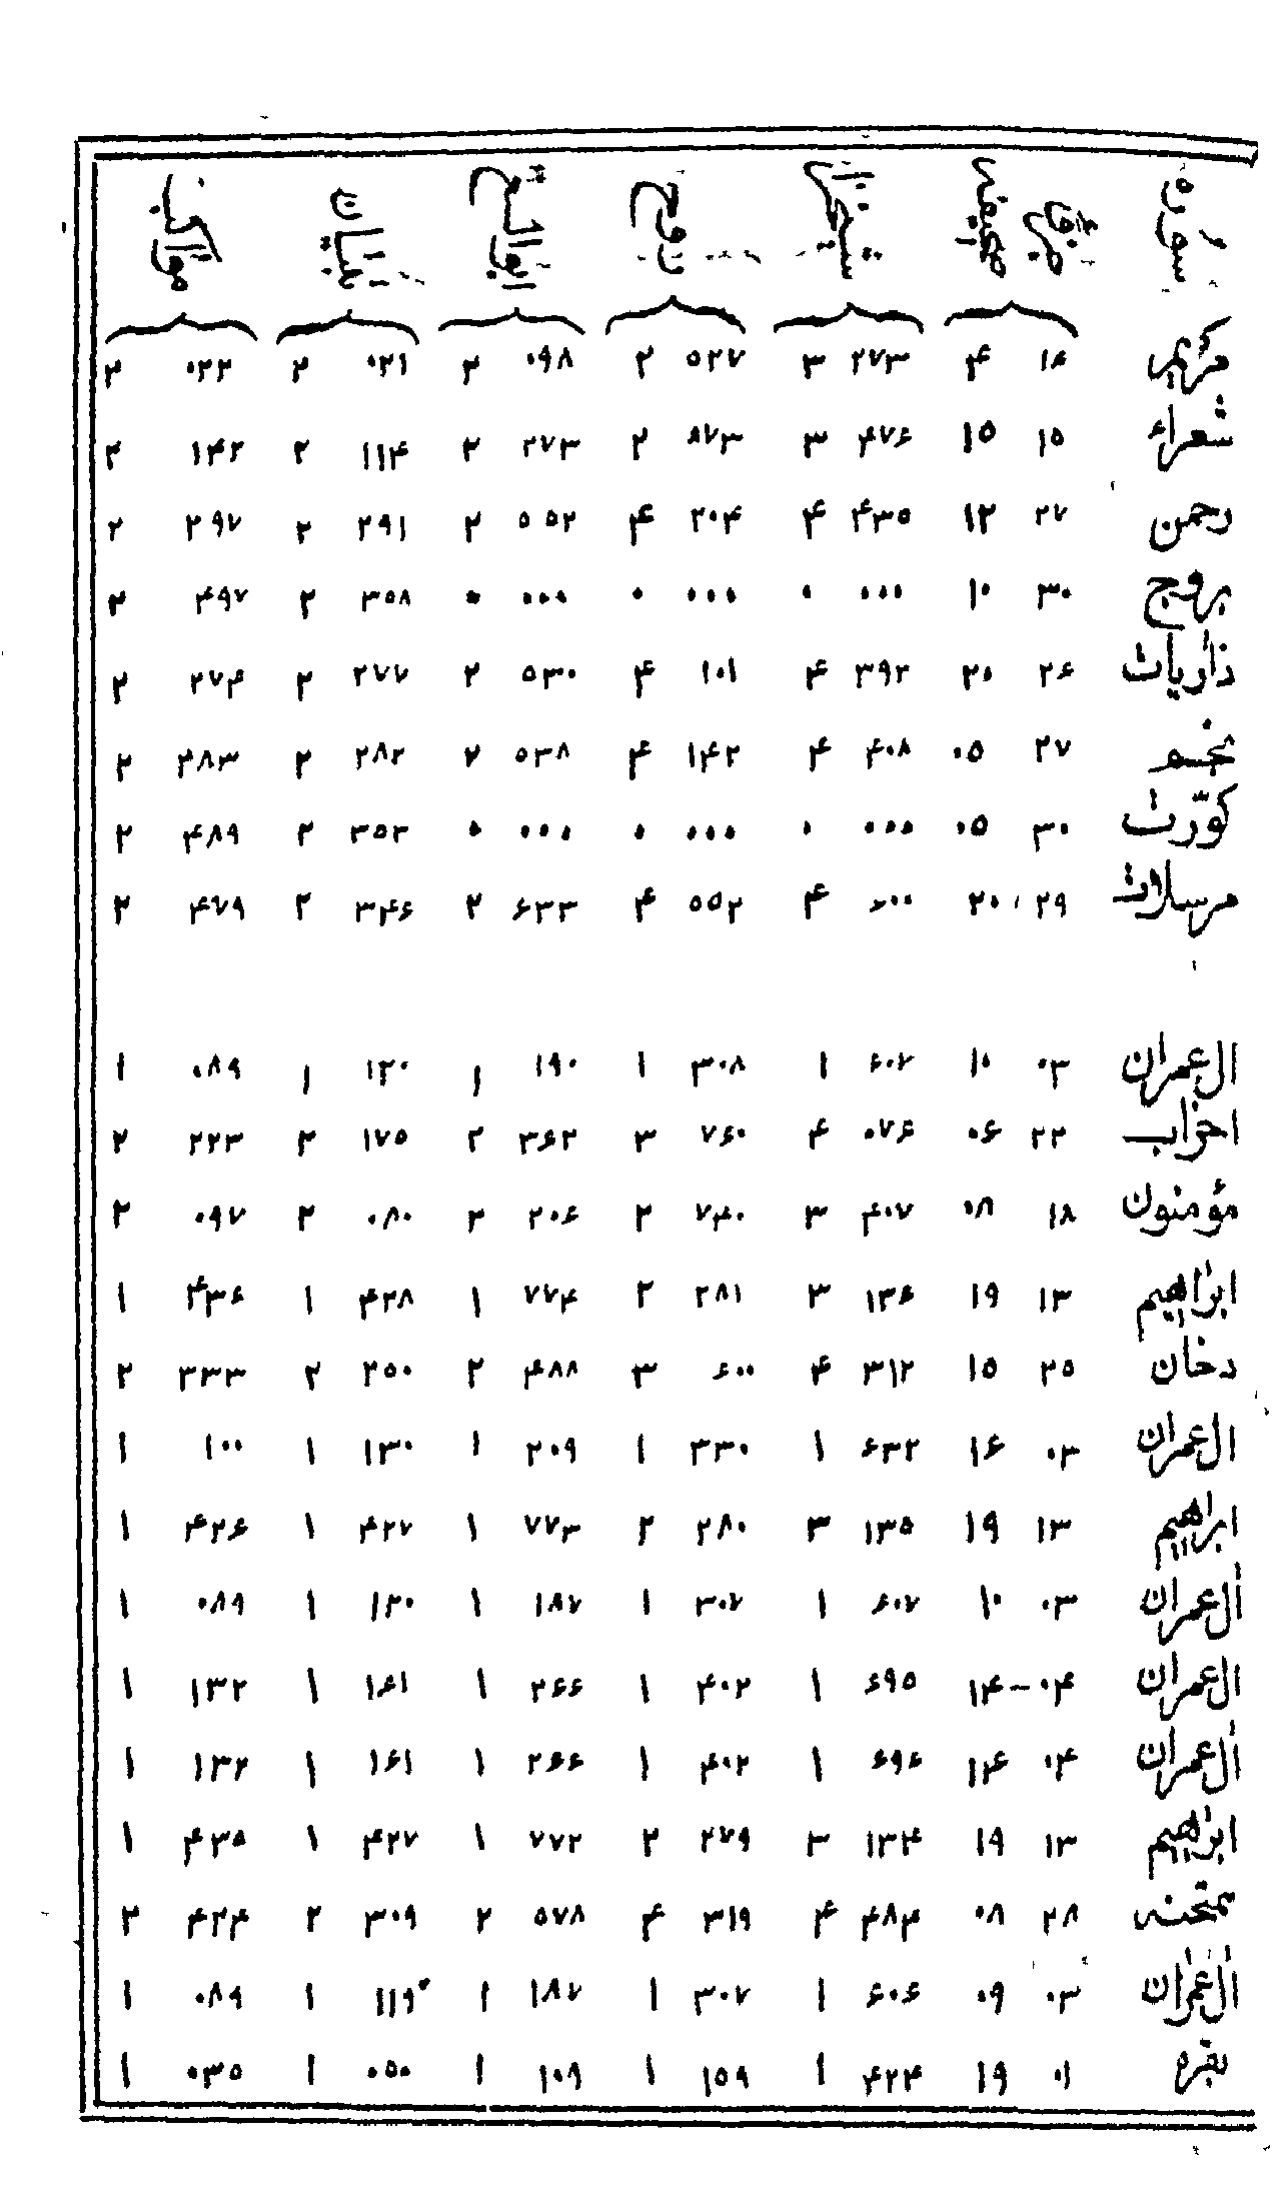 سوره
مریم ۱۶ ۴ ۲۷۳ ۳ ۵۲۷ ۲ ۰۹۸ ۲ ۰۲۱ ۲ ۰۲۲ ۲
شعراء ۱۵ ۱۵ ۴۷۶ ۳ ۸۷۳ ۲ ۲۷۳ ۲ ۱۱۴ ۲ ۱۴۲ ۲
رحمن ۲۷ ۱۲ ۴۳۵ ۴ ۲۰۴ ۴ ۵۵۲ ۲ ۲۹۱ ۲ ۲۹۷ ۲
بروج ۳۰ ۱۰ ۰۰۰ ۰ ۰۰۰ ۰ ۰۰۰ ۰ ۳۵۸ ۲ ۴۹۷ ۲
ذاریات ۲۶ ۲۰ ۳۹۲ ۴ ۱۰۱ ۴ ۵۳۰ ۲ ۲۷۷ ۲ ۲۷۴ ۲
نجم ۲۷ ۰۵ ۴۰۸ ۴ ۱۴۲ ۴ ۵۳۸ ۲ ۲۸۲ ۲ ۲۸۳ ۲
کوّرت ۳۰ ۰۵ ۰۰۰ ۰ ۰۰۰ ۰ ۰۰۰ ۰ ۳۵۳ ۲ ۴۸۹ ۲
مرسلات ۲۹ ۲۰ ۶۰۰ ۴ ۵۵۲ ۴ ۶۳۳ ۲ ۳۴۶ ۲ ۴۷۹ ۲
ال عمران ۰۳ ۱۰ ۶۰۷ ۱ ۳۰۸ ۱ ۱۹۰ ۱ ۱۲۰ ۱ ۰۸۹ ۱
احزاب ۲۲ ۰۶ ۰۷۶ ۴ ۷۶۰ ۳ ۳۶۲ ۲ ۱۷۵ ۲ ۲۲۳ ۲
مؤمنون ۱۸ ۰۸ ۴۰۷ ۳ ۷۴۰ ۲ ۲۰۶ ۲ ۰۸۰ ۲ ۰۹۷ ۲
ابراهیم ۱۳ ۱۹ ۱۳۶ ۳ ۲۸۱ ۲ ۷۷۴ ۱ ۴۲۸ ۱ ۴۳۶ ۱
دخان ۲۵ ۱۵ ۳۱۲ ۴ ۶۰۰ ۳ ۴۸۸ ۲ ۲۵۰ ۲ ۳۳۳ ۲
ال عمران ۰۳ ۱۶ ۶۳۲ ۱ ۳۳۰ ۱ ۲۰۹ ۱ ۱۳۰ ۱ ۱۰۰ ۱
ابراهیم ۱۳ ۱۹ ۱۳۵ ۳ ۲۸۰ ۲ ۷۷۳ ۱ ۴۲۷ ۱ ۴۲۶ ۱
ال عمران ۰۳ ۱۰ ۶۰۷ ۱ ۳۰۷ ۱ ۱۸۷ ۱ ۱۲۰ ۱ ۰۸۹ ۱
ال عمران ۰۴-۱۴ ۶۹۵ ۱ ۴۰۲ ۱ ۲۶۶ ۱ ۱۶۱ ۱ ۱۳۲ ۱
ال عمران ۰۴ ۱۴ ۶۹۶ ۱ ۴۰۲ ۱ ۲۶۶ ۱ ۱۶۱ ۱ ۱۳۲ ۱
ابراهیم ۱۳ ۱۹ ۱۳۴ ۳ ۲۷۹ ۲ ۷۷۲ ۱ ۴۲۷ ۱ ۴۳۵ ۱
ممتحنه ۲۸ ۰۸ ۴۸۴ ۴ ۳۱۹ ۴ ۵۷۸ ۲ ۳۰۹ ۲ ۴۲۴ ۲
ال عمران ۰۳ ۰۹ ۶۰۶ ۱ ۳۰۷ ۱ ۱۸۷ ۱ ۱۱۹ ۱ ۰۸۹ ۱
بقره ۰۱ ۱۹ ۴۲۴ ۱ ۱۵۹ ۱ ۱۰۹ ۱ ۰۵۰ ۱ ۰۳۵ ۱